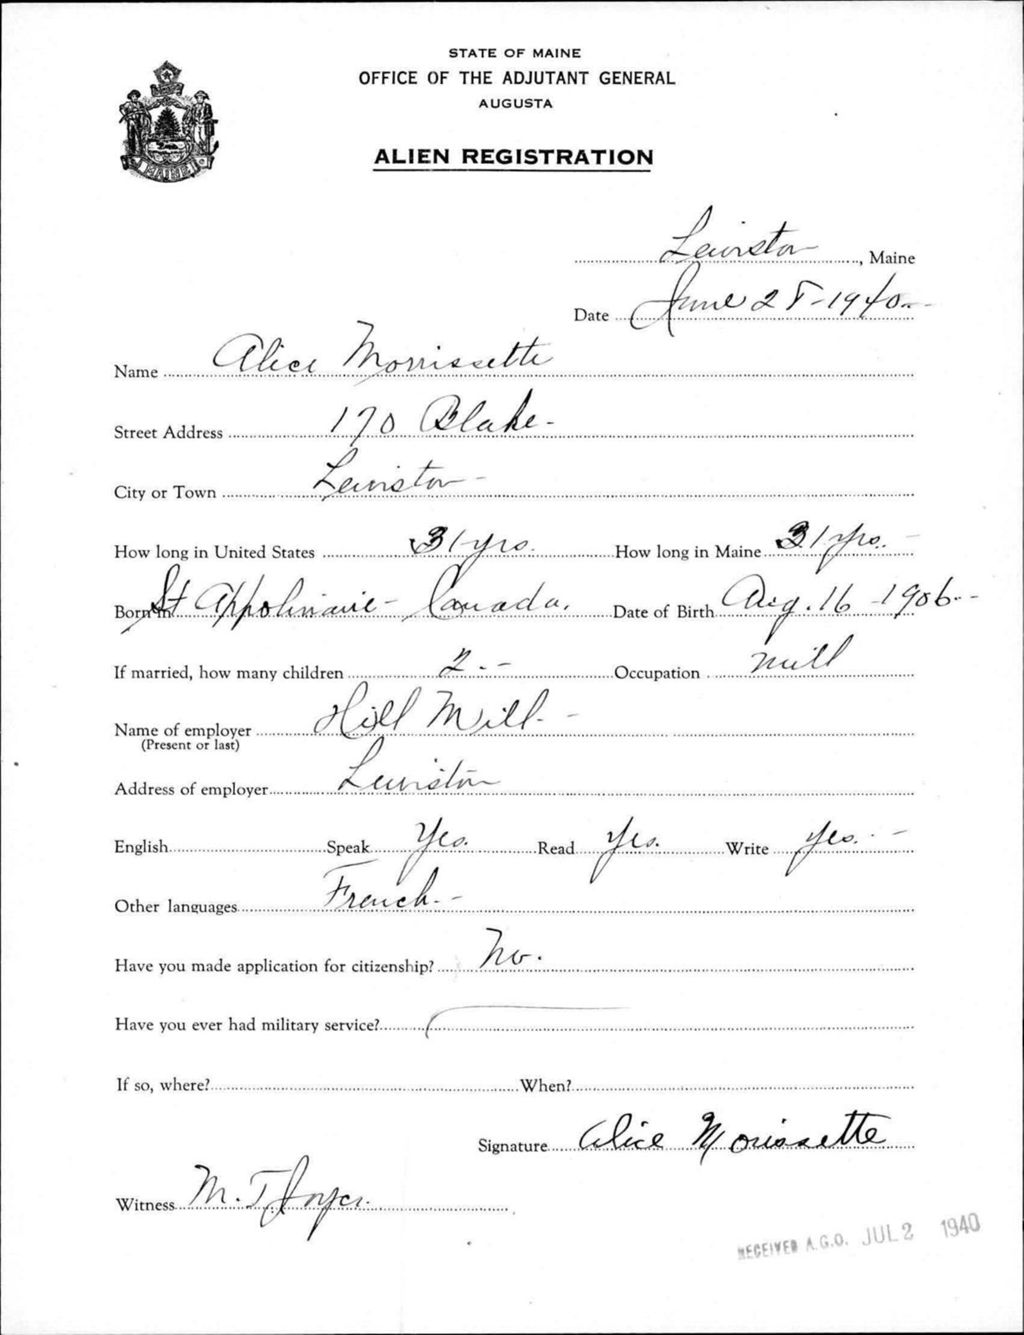 STATE OF MAINE
OFFICE OF THE ADJUTANT GENERAL
AUGUSTA
ALIEN REGISTRATION
MAINE
Lewiston, Maine
Date June 28-1940
Name Alice Morrissette
Street Address 170 Blake
City or Town Lewiston
How long in United States 31 yrs. How long in Maine 31 yrs.
Born in St Appolinaire - Canada. Date of Birth Aug. 16 - 1906
If married, how many children 2 Occupation mill
Name of employer Hill Mill
(Present or last)
Address of employer Lewiston
English Speak Yes. Read Yes. Write Yes.
Other languages French
Have you made application for citizenship? No.
Have you ever had military service?
If so, where? When?
Signature Alice Morissette
Witness M. T. Joyce
RECEIVED A.G.O. JUL 2 1940